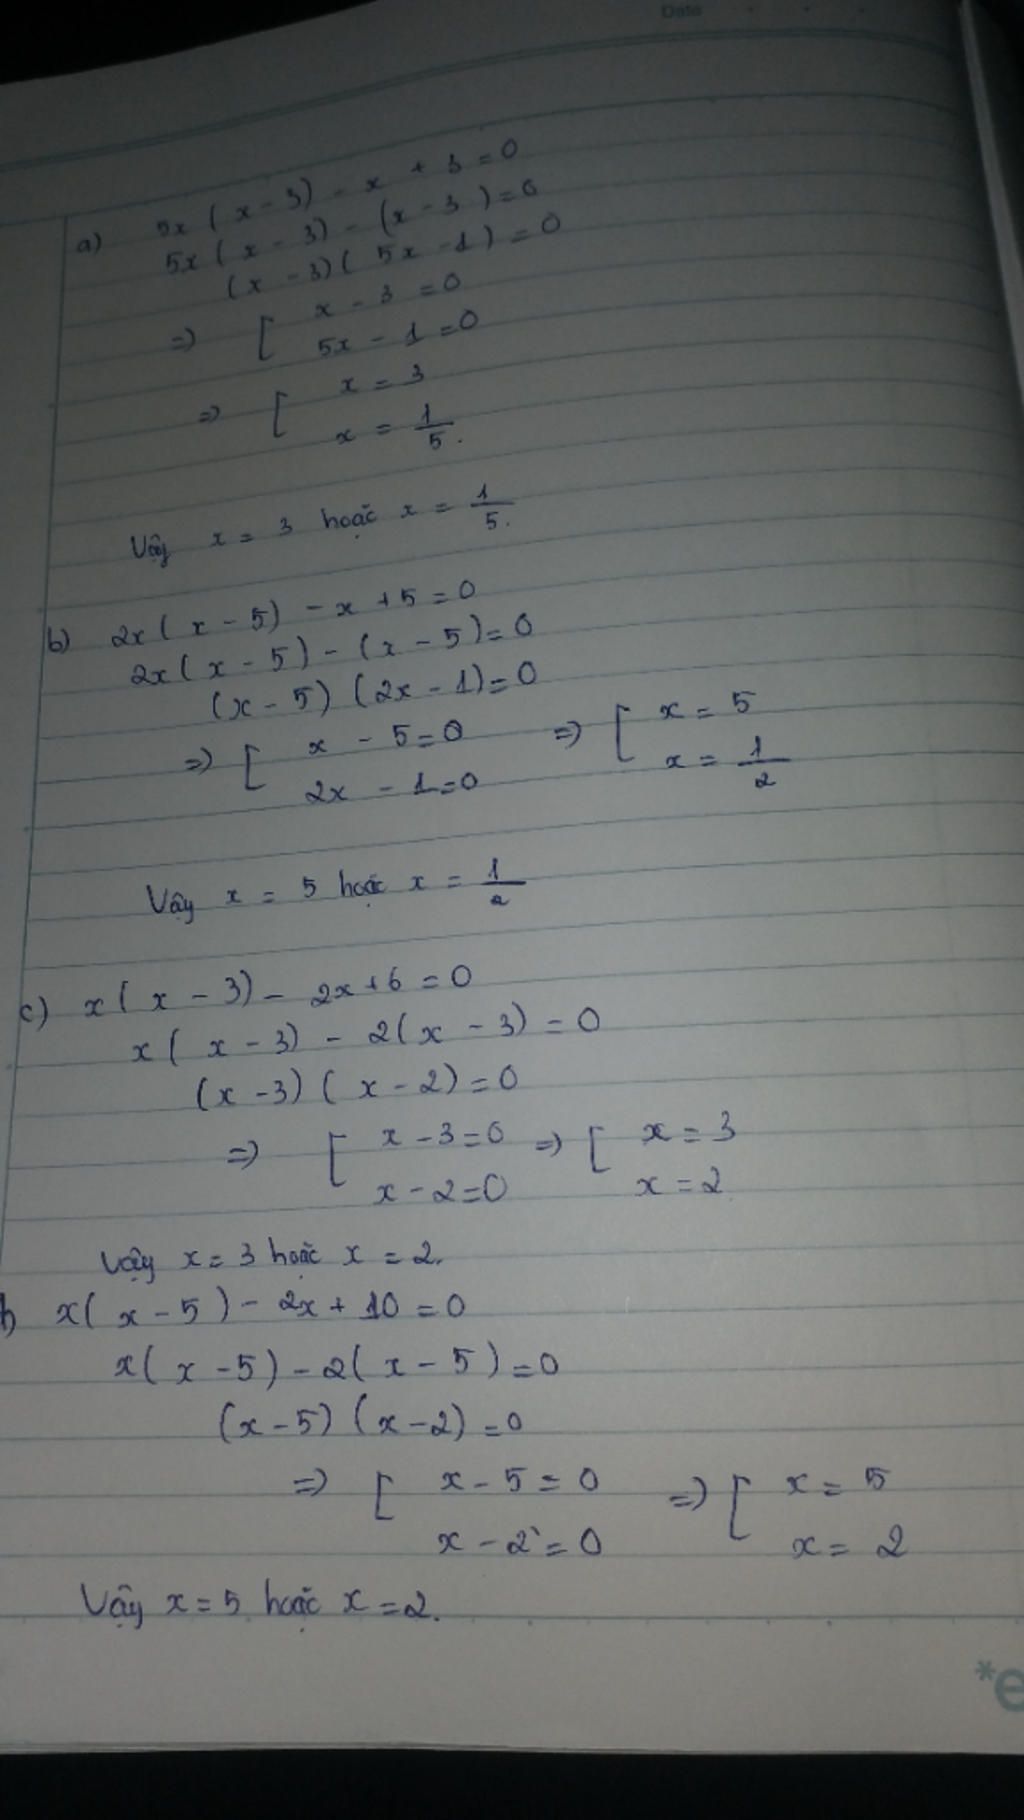 Date
a) 5x(x-3) - x + 3 = 0
5x(x-3) - (x-3) = 0
(x-3)(5x-1) = 0
=> [ x - 3 = 0
5x - 1 = 0
=> [ x = 3
x = 1/5.
Vậy x = 3 hoặc x = 1/5.
b) 2x(x-5) - x + 5 = 0
2x(x-5) - (x-5) = 0
(x-5)(2x-1) = 0
=> [ x - 5 = 0 => [ x = 5
2x - 1 = 0 x = 1/2
Vậy x = 5 hoặc x = 1/2
c) x(x-3) - 2x + 6 = 0
x(x-3) - 2(x-3) = 0
(x-3)(x-2) = 0
=> [ x - 3 = 0 => [ x = 3
x - 2 = 0 x = 2
Vậy x = 3 hoặc x = 2.
x(x-5) - 2x + 10 = 0
x(x-5) - 2(x-5) = 0
(x-5)(x-2) = 0
=> [ x - 5 = 0 => [ x = 5
x - 2 = 0 x = 2
Vậy x = 5 hoặc x = 2.
*e